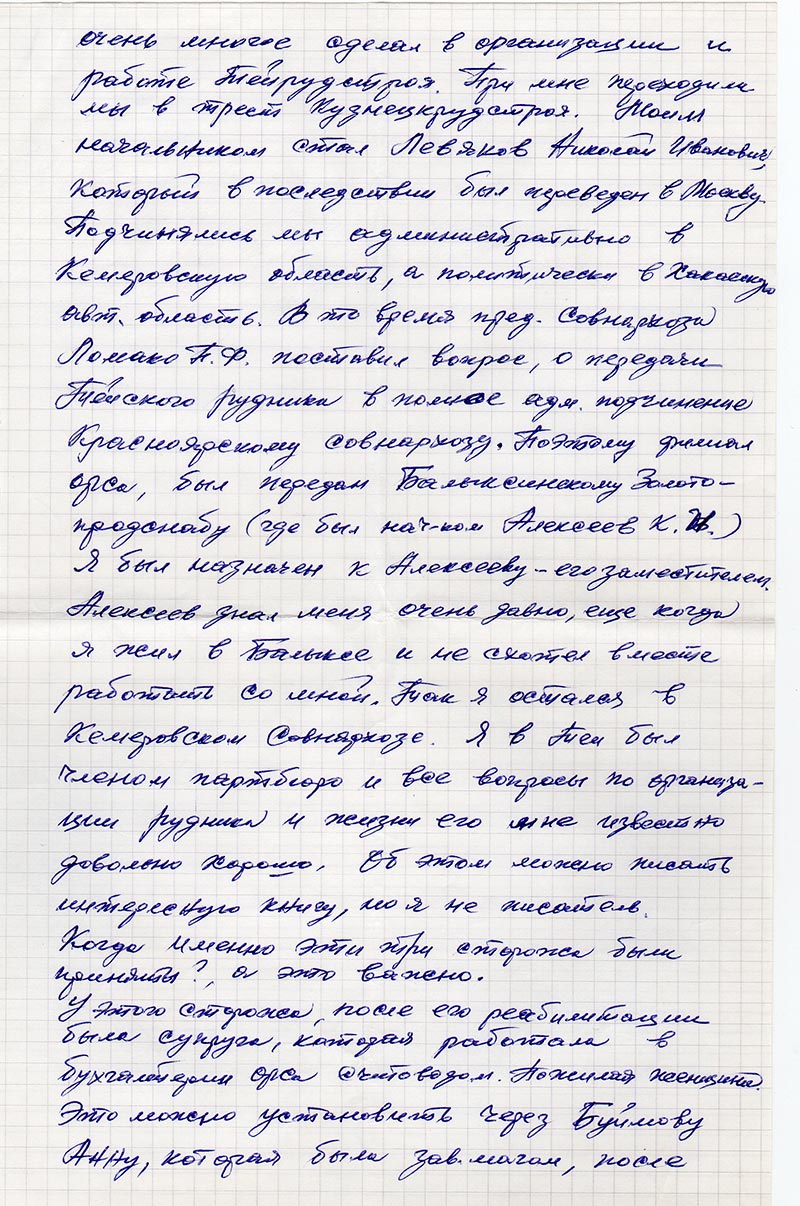 очень многое сделал в организации и
работе Тейрудстроя. При мне переходили
мы в трест Кузнецкрудстроя. Моим
начальником стал Левяков Николай Иванович,
который в последствии был переведен в Москву.
Подчинялись мы административно в
Кемеровскую область, а политически в Хакаскую
авт. область. В то время пред. Совнархоза
Ломако П.Ф. поставил вопрос, о передачи
Тейского рудника в полное адм. подчинение
Красноярскому совнархозу. Поэтому филиал
орса, был передан Балыксинскому Золото-
продснабу (где был нач-ком Алексеев К.И.)
Я был назначен к Алексееву - его заместителем.
Алексеев знал меня очень давно, еще когда
я жил в Балыксе и не схотел вместе
работать со мной. Так я остался в
Кемеровском Совнархозе. Я в Теи был
членом партбюро и все вопросы по организа-
ции рудника и жизни его мне известно
довольно хорошо. Об этом можно писать
интересную книгу, но я не писатель.
Когда именно эти три сторожа были
приняты?, а это важно.
У этого сторожа, после его реабилитации
была супруга, которая работала в
бухгалтерии орса счетоводом. Пожилая женщина.
Это можно установить через Буймову
Анну, которая была зав.магом, после